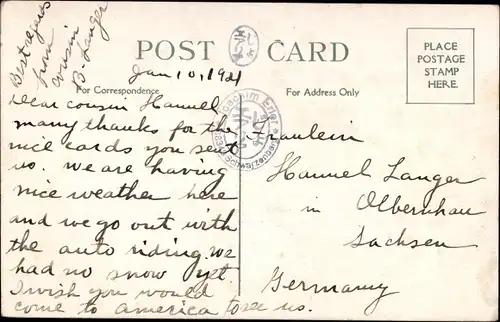 Best regards
from
cousin
B. Langer
POST CARD
Jan 10, 1921
For Correspondence
For Address Only
PLACE
POSTAGE
STAMP
HERE.
Dear cousin Hannel
many thanks for the
nice cards you sent
us. we are having
nice weather here
and we go out with
the auto riding. we
had no snow yet.
I wish you would
come to america to see us.
Fraulein
Hannel Langer
in
Olbernhau
Sachsen
Germany
Joachim Erler
Schwarzenberg